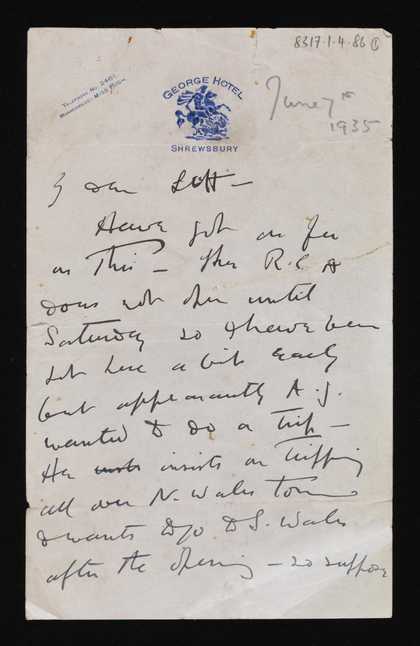 8317.1.4.86 ①
TELEPHONE No. 2461
MANAGERESS: MISS
GEORGE HOTEL
SHREWSBURY
June
1935
My dear Lett –
Have got as far
as This – the R.C A
does not open until
Saturday so I have been
here a bit early
but apparently A.J.
wanted to do a trip –
He insists on Tripping
all over N. Wales
& wants to go to S. Wales
after the opening – so suppose